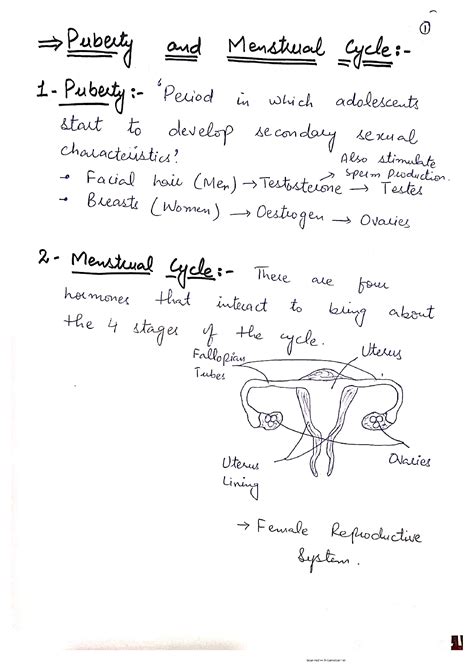 ①
⇒ Puberty and Menstrual Cycle:-
1- Puberty:- 'Period in which adolescents
start to develop secondary sexual
characteristics'.
Also stimulate
sperm production.
• Facial hair (Men) → Testosterone → Testes
• Breasts (Women) → Oestrogen → Ovaries
2- Menstrual Cycle:- There are four
hormones that interact to bring about
the 4 stages of the cycle.
Fallopian
Tubes
Uterus
Uterus
Lining
Ovaries
→ Female Reproductive
System.